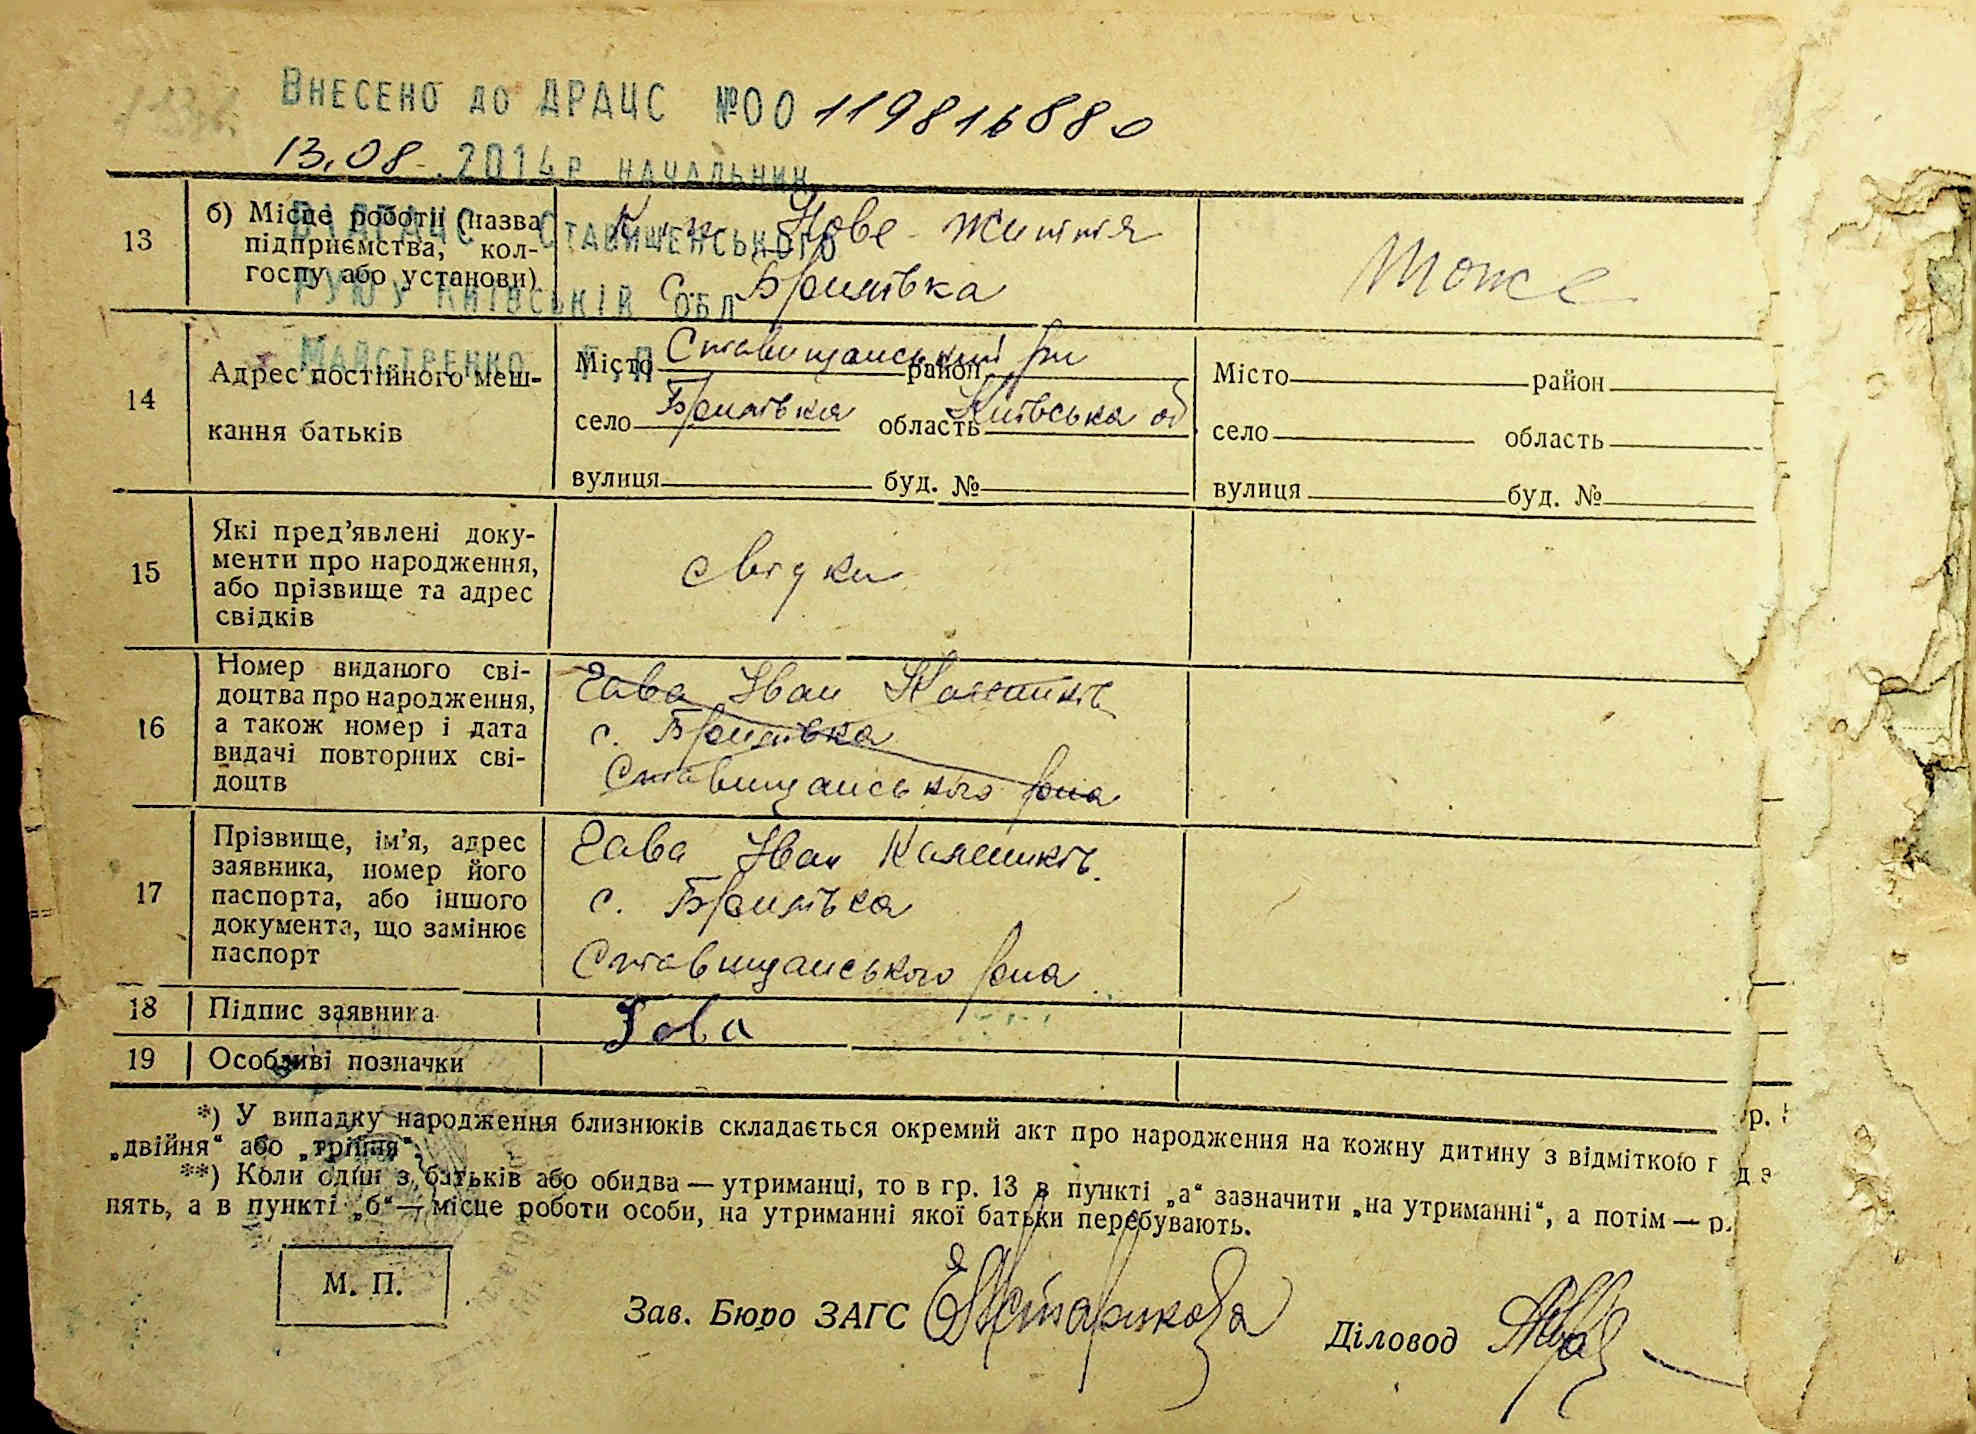 Внесено до ДРАЦС №00 119816880
13.08.2014р начальник
ВДРАЦС Ставищенського
РУЮ у Київській обл
Майстренко
13
б) Місце роботи (назва
підприємства, кол-
госпу або установи)
Нове життя
с. Бримівка
Тоже
14
Адрес постійного меш-
кання батьків
Місто Ставищанський район рн
село Бримівка область Київська об
вулиця буд. №
Місто район
село область
вулиця буд. №
15
Які пред’явлені доку-
менти про народження,
або прізвище та адрес
свідків
свідки
16
Номер виданого сві-
доцтва про народження,
а також номер і дата
видачі повторних сві-
доцтв
Гава Іван
с. Бримівка
Ставищанського рна
17
Прізвище, ім’я, адрес
заявника, номер його
паспорта, або іншого
документа, що замінює
паспорт
Гава Іван
с. Бримівка
Ставищанського рна
18 Підпис заявника Гава
19 Особливі позначки
*) У випадку народження близнюків складається окремий акт про народження на кожну дитину з відміткою
„двійня“ або „трійня“.
**) Коли один з батьків або обидва — утриманці, то в гр. 13 в пункті „а“ зазначити „на утриманні“, а потім —
нять, а в пункті „б“ — місце роботи особи, на утриманні якої батьки перебувають.
М. П.
Зав. Бюро ЗАГС
Діловод